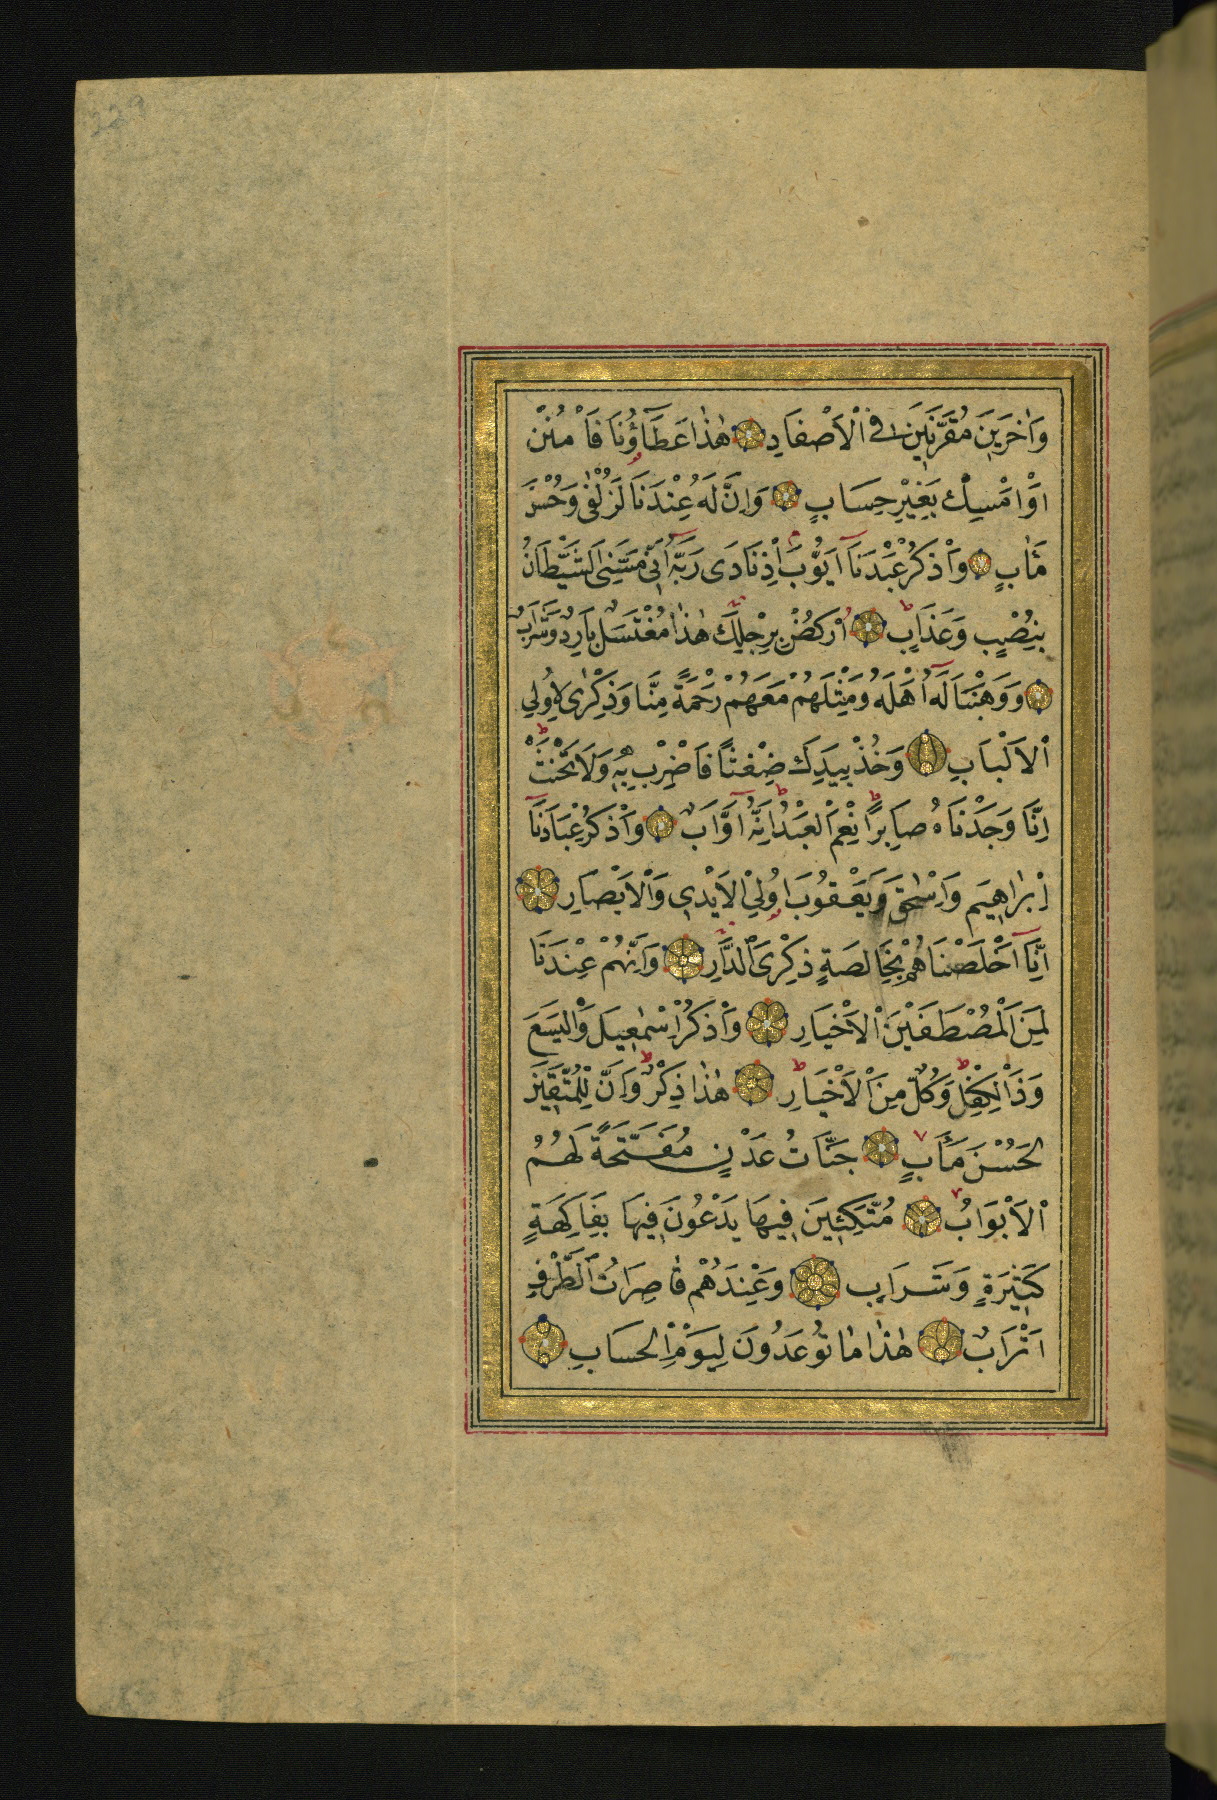 وَاٰخَرٖينَ مُقَرَّنٖينَ فِى الْاَصْفَادِ هٰذَا عَطَٓاؤُنَا فَامْنُنْ
اَوْ اَمْسِكْ بِغَيْرِ حِسَابٍ وَاِنَّ لَهُ عِنْدَنَا لَزُلْفٰى وَحُسْنَ
مَاٰبٍ وَاذْكُرْ عَبْدَنَٓا اَيُّوبَ اِذْ نَادٰى رَبَّهُٓ اَنّٖى مَسَّنِىَ الشَّيْطَانُ
بِنُصْبٍ وَعَذَابٍ اُرْكُضْ بِرِجْلِكَ هٰذَا مُغْتَسَلٌ بَارِدٌ وَشَرَابٌ
وَوَهَبْنَا لَهُٓ اَهْلَهُ وَمِثْلَهُمْ مَعَهُمْ رَحْمَةً مِنَّا وَذِكْرٰى لِاُولِى
الْاَلْبَابِ وَخُذْ بِيَدِكَ ضِغْثًا فَاضْرِبْ بِهٖ وَلَا تَحْنَثْ
اِنَّا وَجَدْنَاهُ صَابِرًا نِعْمَ الْعَبْدُ اِنَّهُٓ اَوَّابٌ وَاذْكُرْ عِبَادَنَٓا
اِبْرٰهِيمَ وَاِسْحٰقَ وَيَعْقُوبَ اُولِى الْاَيْدٖى وَالْاَبْصَارِ
اِنَّٓا اَخْلَصْنَاهُمْ بِخَالِصَةٍ ذِكْرَى الدَّارِ وَاِنَّهُمْ عِنْدَنَا
لَمِنَ الْمُصْطَفَيْنَ الْاَخْيَارِ وَاذْكُرْ اِسْمٰعٖيلَ وَالْيَسَعَ
وَذَا الْكِفْلِ وَكُلٌّ مِنَ الْاَخْيَارِ هٰذَا ذِكْرٌ وَاِنَّ لِلْمُتَّقٖينَ
لَحُسْنَ مَاٰبٍ جَنَّاتُ عَدْنٍ مُفَتَّحَةً لَهُمُ
الْاَبْوَابُ مُتَّكِئٖينَ فٖيهَا يَدْعُونَ فٖيهَا بِفَاكِهَةٍ
كَثٖيرَةٍ وَشَرَابٍ وَعِنْدَهُمْ قَاصِرَاتُ الطَّرْفِ
اَتْرَابٌ هٰذَا مَا تُوعَدُونَ لِيَوْمِ الْحِسَابِ